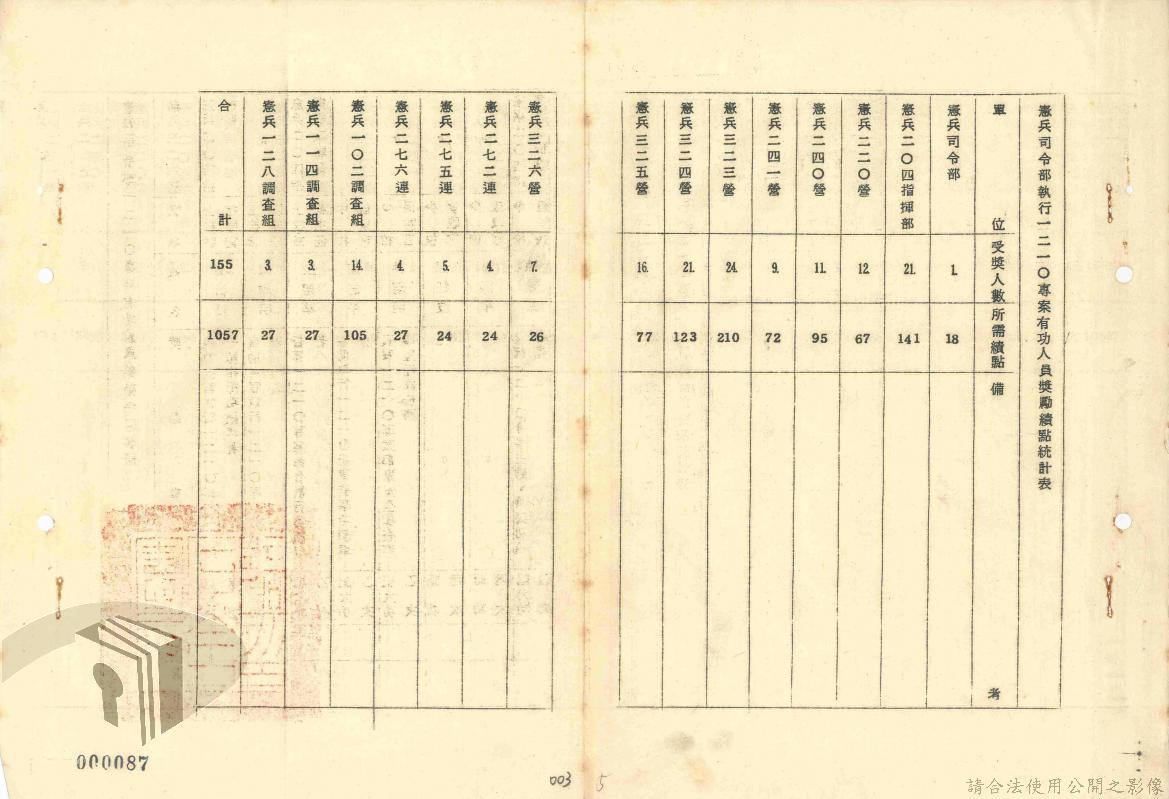 憲兵司令部執行一二一〇專案有功人員獎勵績點統計表
單位 受獎人數 所需績點 備考
憲兵司令部 1. 18
憲兵二〇四指揮部 21. 141
憲兵二二〇營 12. 67
憲兵二四〇營 11. 95
憲兵二四一營 9. 72
憲兵三二三營 24. 210
憲兵三二四營 21. 123
憲兵三二五營 16. 77
憲兵三二六營 7. 26
憲兵二七二連 4. 24
憲兵二七五連 5. 24
憲兵二七六連 4. 27
憲兵一〇二調查組 14. 105
憲兵一一四調查組 3. 27
憲兵一二八調查組 3. 27
合計 155 1057
000087
003
5
請合法使用公開之影像